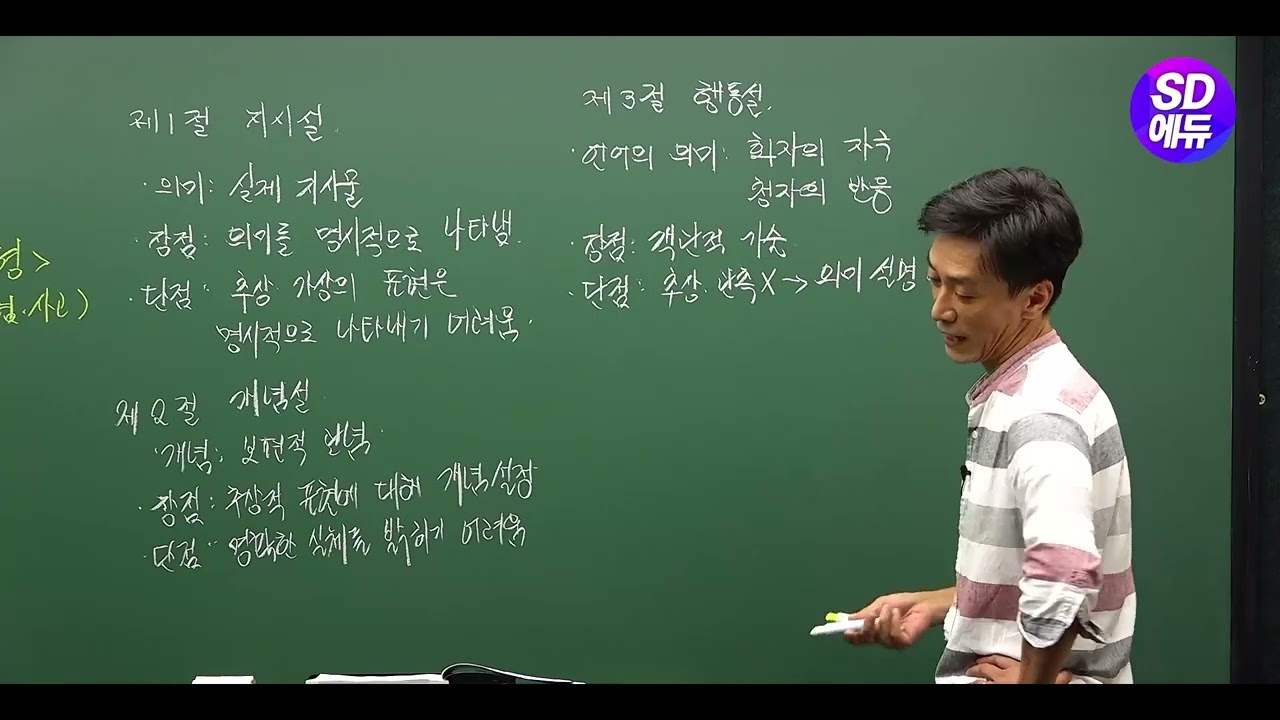 제1절 지시설.
· 의미: 실제 지시물
· 장점: 의미를 명시적으로 나타냄.
· 단점: 추상 가상의 표현은
명시적으로 나타내기 어려움.
제2절 개념설
· 개념: 보편적 관념.
· 장점: 추상적 표현에 대해 개념 설정
· 단점: 명확한 실체를 밝히기 어려움
제3절 행동설.
· 언어의 의미: 화자의 자극
청자의 반응
· 장점: 객관적 기술
· 단점: 추상. 관측X → 의미 설명
SD
에듀